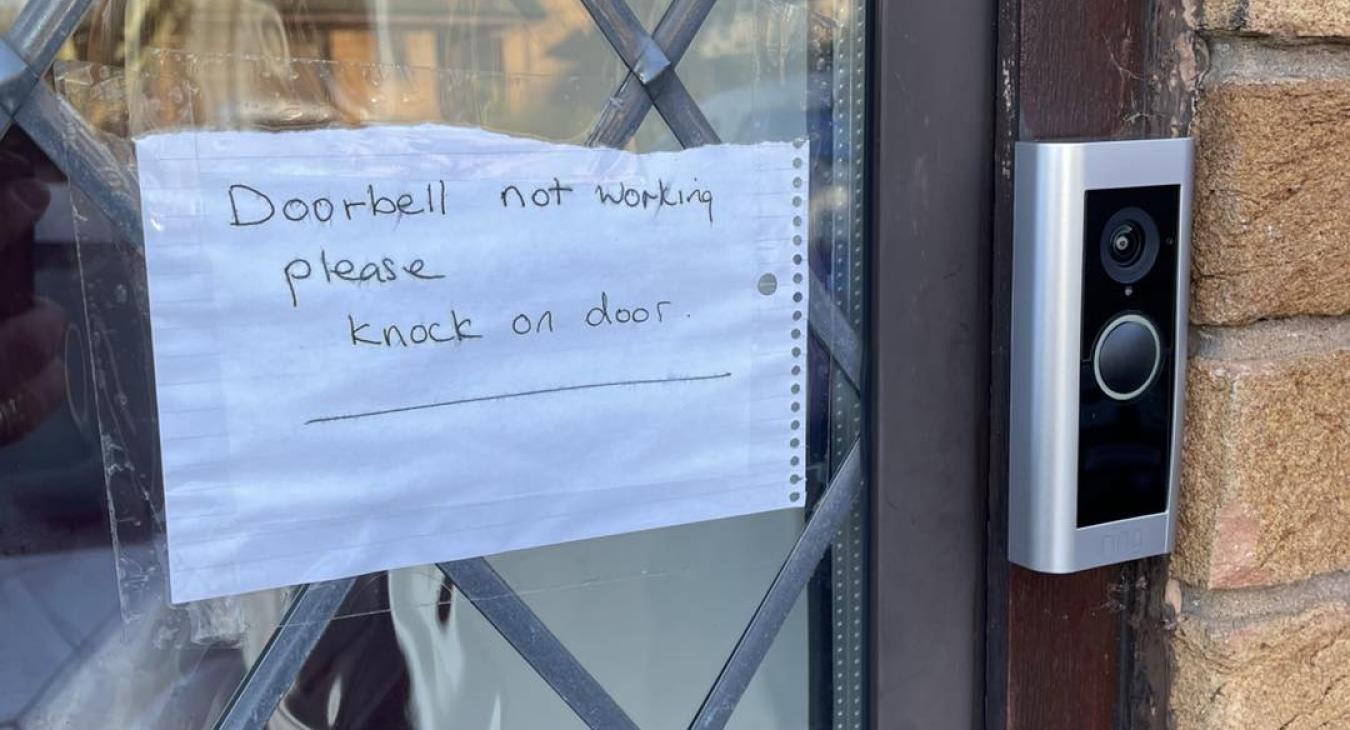 Doorbell not working
please
knock on door.
ring